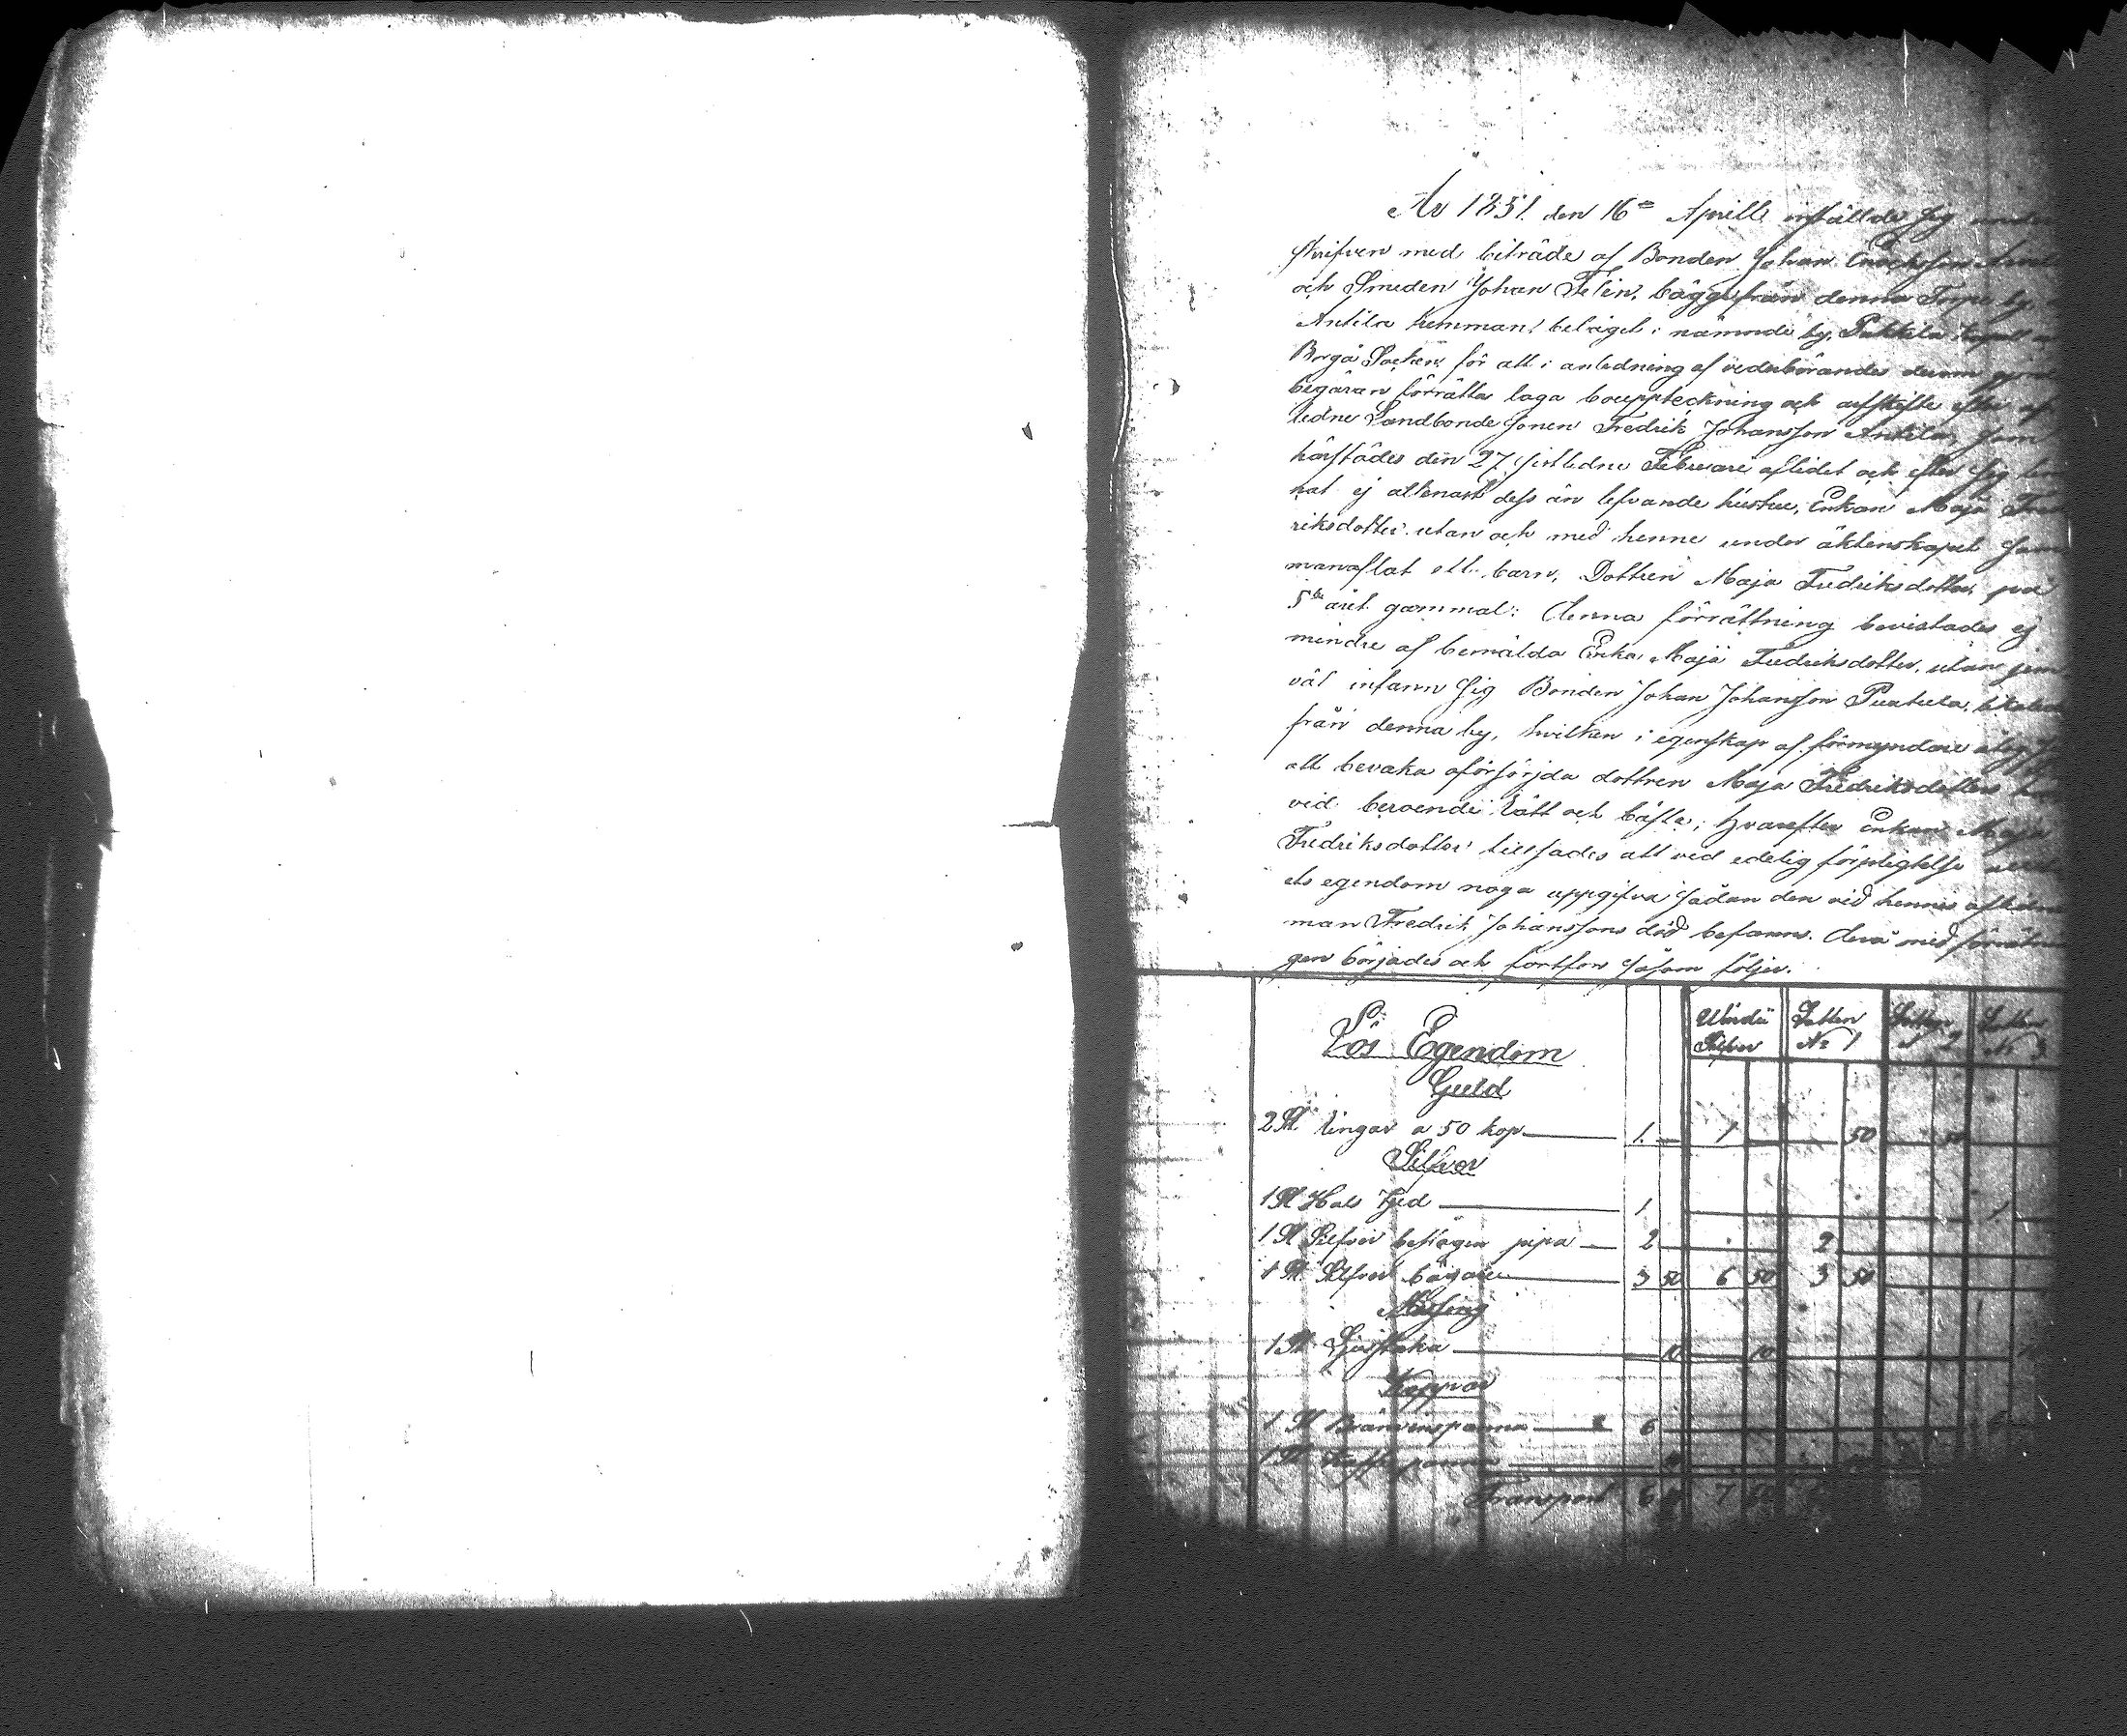 År 1851. den 16de Aprill instälde sig under
skrifven med biträde af Bonden Johan
och Smeden Johan Felin, bägge från denna Torpi by,
Antila hemman, beläget i nämnde by, Pukkila kapell
Borgå Socken för att i anledning af vederbörandes derom
begäran förrätta laga bouppteckning och arfskifte efter af
ledne Landbonde sonen Fredrik Johansson Antila, som
härstädes den 27 sistledne Februari aflidet och efter sig
nat ej allenast dess än lefvande hustru, Enkan Maja Fred
riksdotter utan och med henne under äktenskapet sam
manaflat ett barn, Dottren Maja Fredriksdotter på
5te året gammal: denna förrättning bevistades ej
mindre af bemälda Enka Maja Fredriksdotter, utan jem
väl infann sig Bonden Johan Johansson Puutula,
från denna by, hvilken i egenskap af förmyndare
att bevaka oförsörjda dottren Maja Fredriksdotters
vid beroende rätt och bästa; hvarefter Enkan Maja
Fredriksdotter tillsades att ved edelig förpligtelse
ets egendom noga uppgifva sådan den vid hennes
man Fredrik Johanssons död befanns. derå med förrättnin
gen börjades och fortfor såsom följer.
Värde Silfver Lotten No 1 Lotten 2 Lotten No 3
Lös Egendom
Guld
2 St ringar a 50 kop 1. 1 50 50
Silfver
1 St Hals Kjed 1 1
1 St Silfver beslagen pipa 2 2
1 St Silfver bägare 3 50 6 50 3 50
Messing
1 St Ljusstaka 10 10
Koppar
1 St Brännvinspanna 6 6
1 St Kaffepanna
Transport 6 7